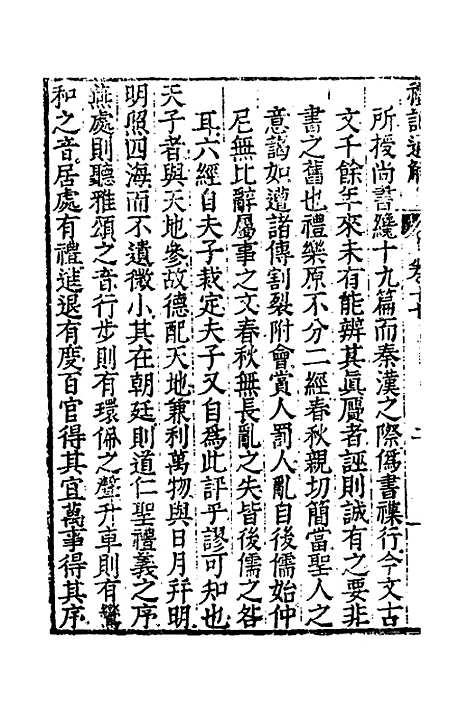 禮記通解
所授尚書纔十九篇而秦漢之際僞書襍行今文古
文千餘年來未有能辨其眞贋者誣則誠有之要非
書之舊也禮樂原不分二經春秋親切簡當聖人之
意藹如遭諸傳割裂附會賞人罰人亂自後儒始仲
尼無比辭屬事之文春秋無長亂之失皆後儒之咎
耳六經自夫子裁定夫子又自爲此評乎謬可知也
天子者與天地參故德配天地兼利萬物與日月幷明
明照四海而不遺微小其在朝廷則道仁聖禮義之序
燕處則聽雅頌之音行步則有環佩之聲升車則有鸞
和之音居處有禮進退有度百官得其宜萬事得其序